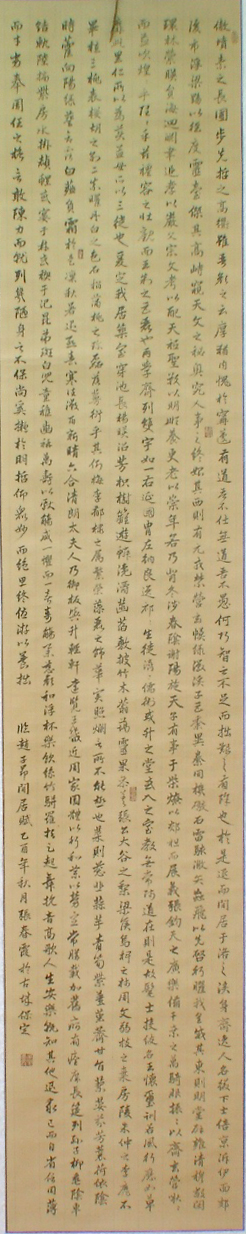 傲墳素之長圃步先哲之高衢雖吾顏之云厚猶內愧於甯蘧有道吾不仕無道吾不愚何巧智之不足而拙艱之有餘也於是退而閒居于洛之涘身齊逸人名綴下士陪京泝伊面郊
後市浮梁黝以徑度靈臺傑其高峙窺天文之祕奧究人事之終始其西則有元戎禁營玄幙綠徽谿子巨黍異絭同機礮石雷駭激矢虻飛以先啓行耀我皇威其東則明堂辟雍清穆敞閑
環林縈映圓海迴淵聿追孝以嚴父宗文考以配天祗聖敬以明順養更老以崇年若乃背冬涉春陰謝陽施天子有事于柴燎以郊祖而展義張鈞天之廣樂備千乘之萬騎服振振以齊玄管啾啾
而並吹煌煌乎隱隱乎茲禮容之壯觀而王制之巨麗也兩學齊列雙宇如一右延國胄左納良逸祁祁生徒濟濟儒術或升之堂或入之室教無常師道在則是故髦士投紱名王懷璽訓若風行應如草
靡此里仁所以為美孟母所以三徙也爰定我居築室穿池長楊映沼芳枳樹籬游鱗瀺灂菡萏敷披竹木蓊藹靈果參差張公大谷之梨梁侯烏椑之柿周文弱枝之棗房陵朱仲之李靡不
畢植三桃表櫻胡之別二柰曜丹白之色石榴蒲桃之珍磊落蔓衍乎其側梅李郁棣之屬繁榮藻麗之飾華實照爛言所不能極也菜則葱韭蒜芋青筍紫薑堇薺甘旨蓼荾芬芳蘘荷依陰
時藿向陽綠葵含露白薤負霜於是凜秋暑退熙春寒往微雨新晴六合清朗太夫人乃御板輿升輕軒遠覽王畿近周家園體以行和藥以勞宣常膳載加舊痾有痊席長筵列孫子柳垂陰車
結軌陸摘紫房水挂赬鯉或宴于林或禊于汜昆弟斑白兒童稚齒稱萬壽以獻觴咸一懼而一喜壽觴舉慈顏和浮杯樂飲絲竹駢羅頓足起舞抗音高歌人生安樂孰知其他退求己而自省信用薄
而才劣奉周任之格言敢陳力而就列幾陋身之不保尚奚擬於明哲仰衆妙而絕思終優游以養拙 臨趙子昂閒居賦乙酉年秋月張春霞於古城保定